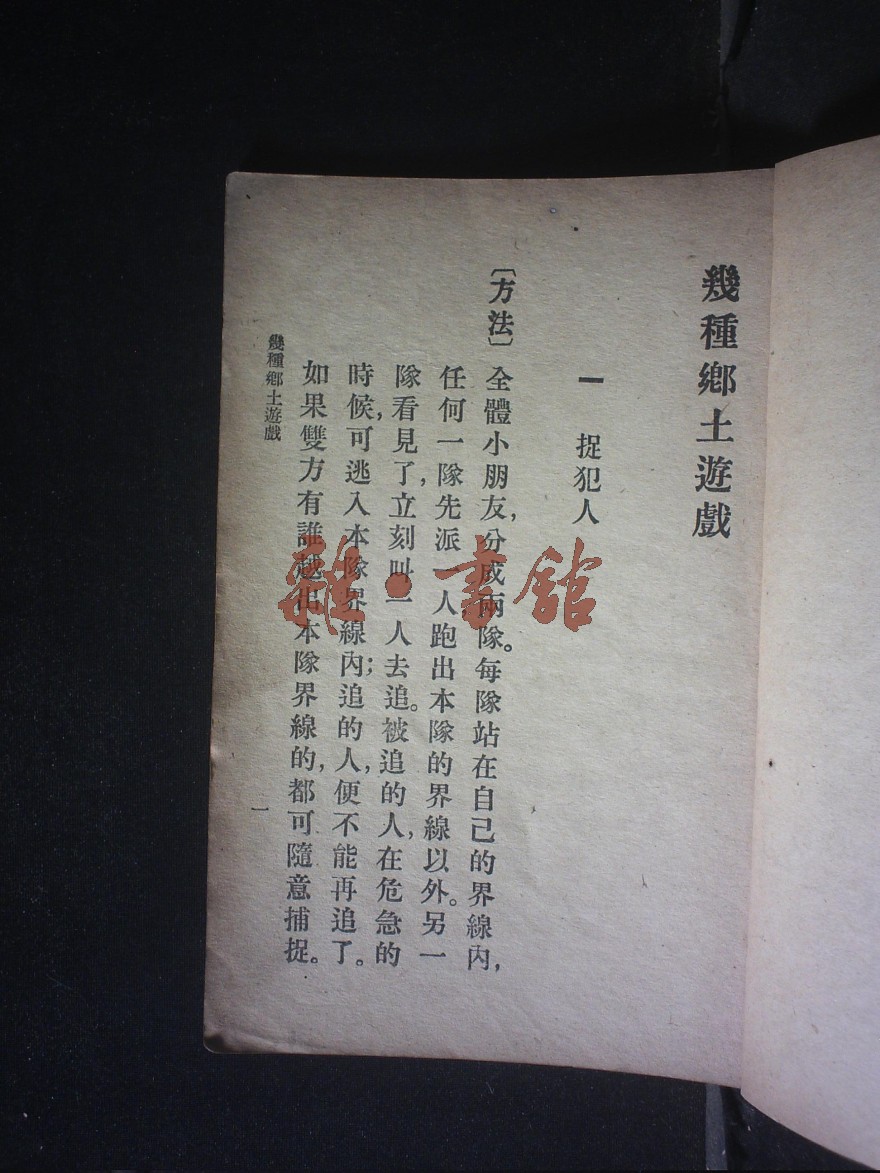 幾種鄉土遊戲
一　捉犯人
〔方法〕全體小朋友，分成兩隊。每隊站在自己的界線內，
任何一隊先派一人跑出本隊的界線以外。另一
隊看見了，立刻叫一人去追。被追的人，在危急的
時候，可逃入本隊界線內；追的人，便不能再追了。
如果雙方有誰越出本隊界線的，都可隨意捕捉。
幾種鄉土遊戲
一
雜·書館